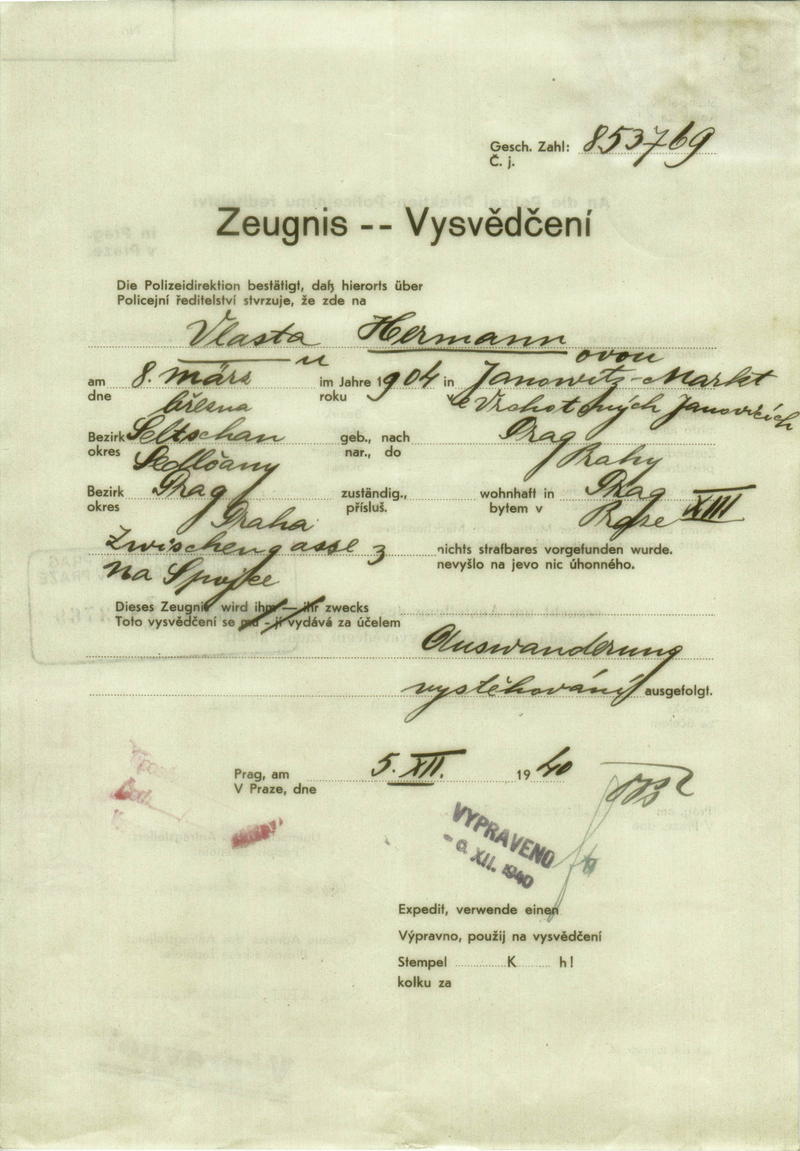 Gesch. Zahl: 853769
Č. j.
Zeugnis -- Vysvědčení
Die Polizeidirektion bestätigt, daß hierorts über
Policejní ředitelství stvrzuje, že zde na
Vlasta Hermann
u ovou
am 8. März im Jahre 1904 in Janowitz-Markt
dne března roku ve Vrchotových Janovicích
Bezirk Seltschan geb., nach Prag
okres Sedlčany nar., do Prahy
Bezirk Prag zuständig., wohnhaft in Prag XIII
okres Praha přísluš. bytem v Praze
Zwischengasse 3 nichts strafbares vorgefunden wurde.
Na Spojce nevyšlo na jevo nic úhonného.
Dieses Zeugnis wird ihm — ihr zwecks
Toto vysvědčení se mu - jí vydává za účelem
Auswanderung
vystěhování ausgefolgt.
Prag, am 5. XII. 1940
V Praze, dne
VYPRAVENO
XII. 1940
Expedit, verwende einen
Výpravno, použij na vysvědčení
Stempel K h!
kolku za